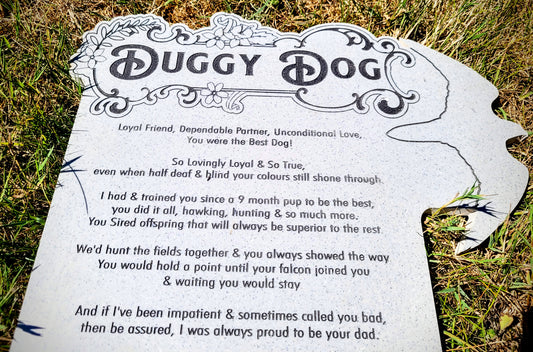 DUGGY DOG
Loyal Friend, Dependable Partner, Unconditional Love,
You were the Best Dog!
So Lovingly Loyal & So True,
even when half deaf & blind your colours still shone through.
I had & trained you since a 9 month pup to be the best,
you did it all, hawking, hunting & so much more.
You Sired offspring that will always be superior to the rest
We'd hunt the fields together & you always showed the way
You would hold a point until your falcon joined you
& waiting you would stay
And if I've been impatient & sometimes called you bad,
then be assured, I was always proud to be your dad.